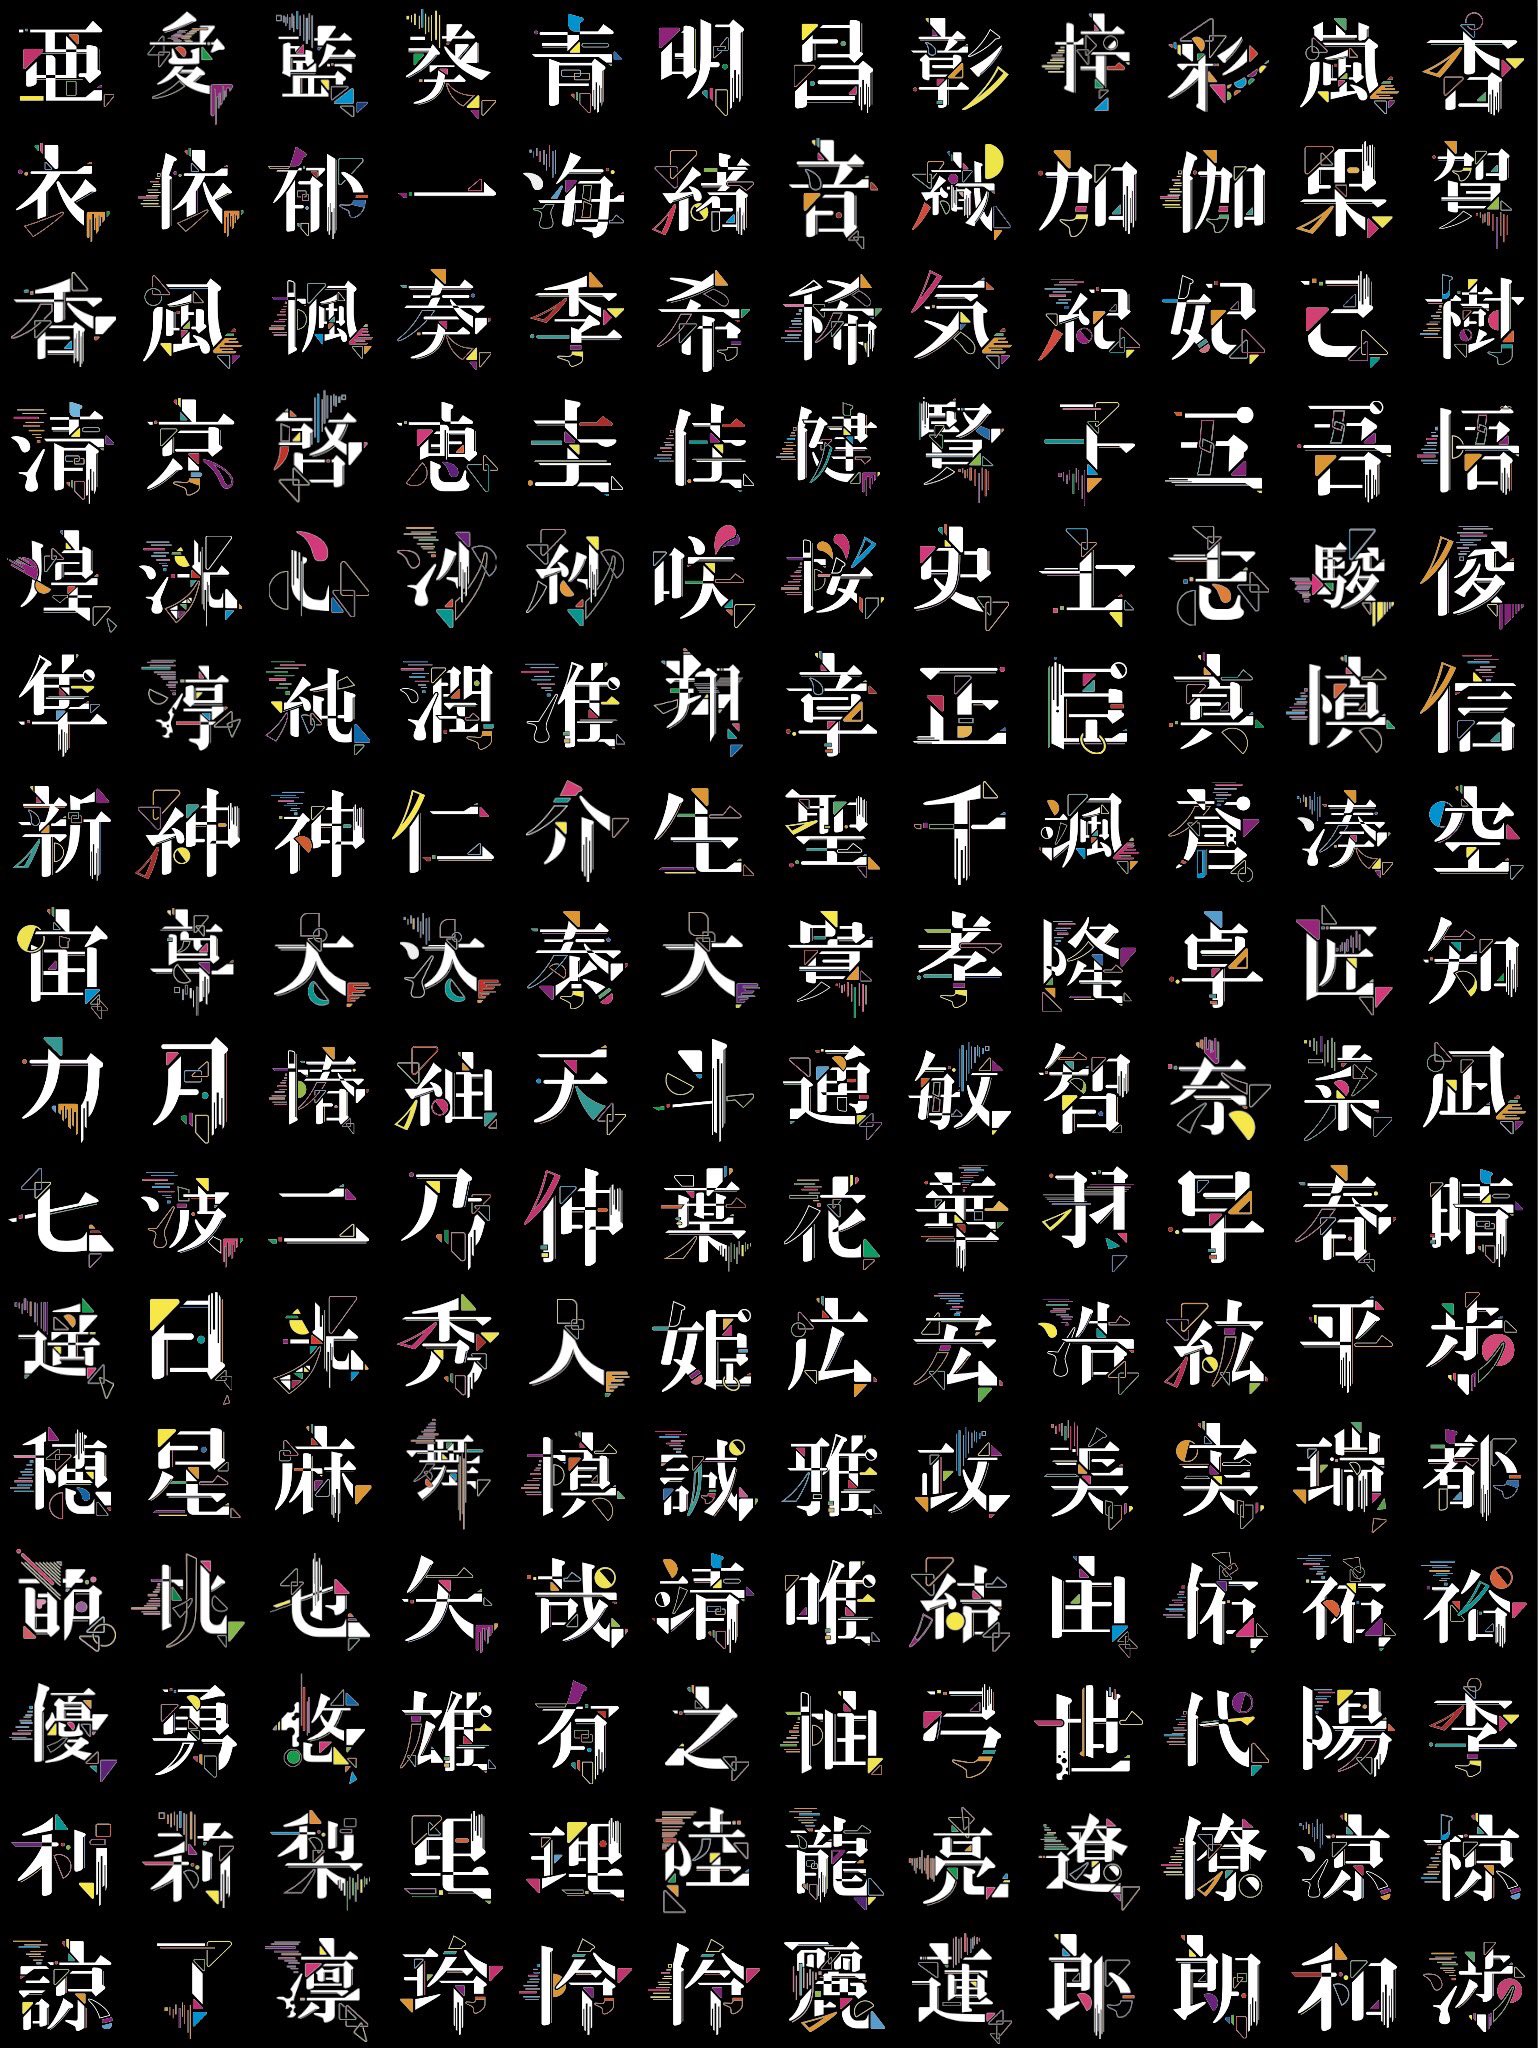 亜愛藍葵青明昌彰梓彩嵐杏
衣依郁一海緒音織加伽果賀
香風楓奏季希稀気紀妃己樹
清京啓恵圭佳健賢子五吾悟
煌洸心沙紗咲桜史士志駿俊
隼淳純潤淮翔章正臣真慎信
新紳神仁介生聖千颯蒼湊空
宙尊太汰泰大貴孝隆卓匠知
力月椿紬天斗通敏智奈柔凪
七波二乃伸葉花華羽早春晴
遥日光秀人姫広宏浩紘平歩
穂星麻舞慎誠雅政美実瑞都
萌桃也矢哉靖唯結由佑祐裕
優勇悠雄有之柚弓世代陽李
利莉梨里理陸龍亮遼僚涼椋
諒了凛玲怜伶麗蓮郎朗和渉